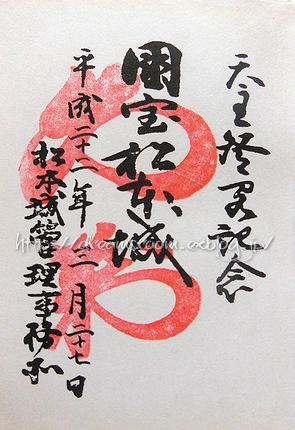 天主登閣記念
国宝松本城
平成二十八年三月二十七日
松本城管理事務所